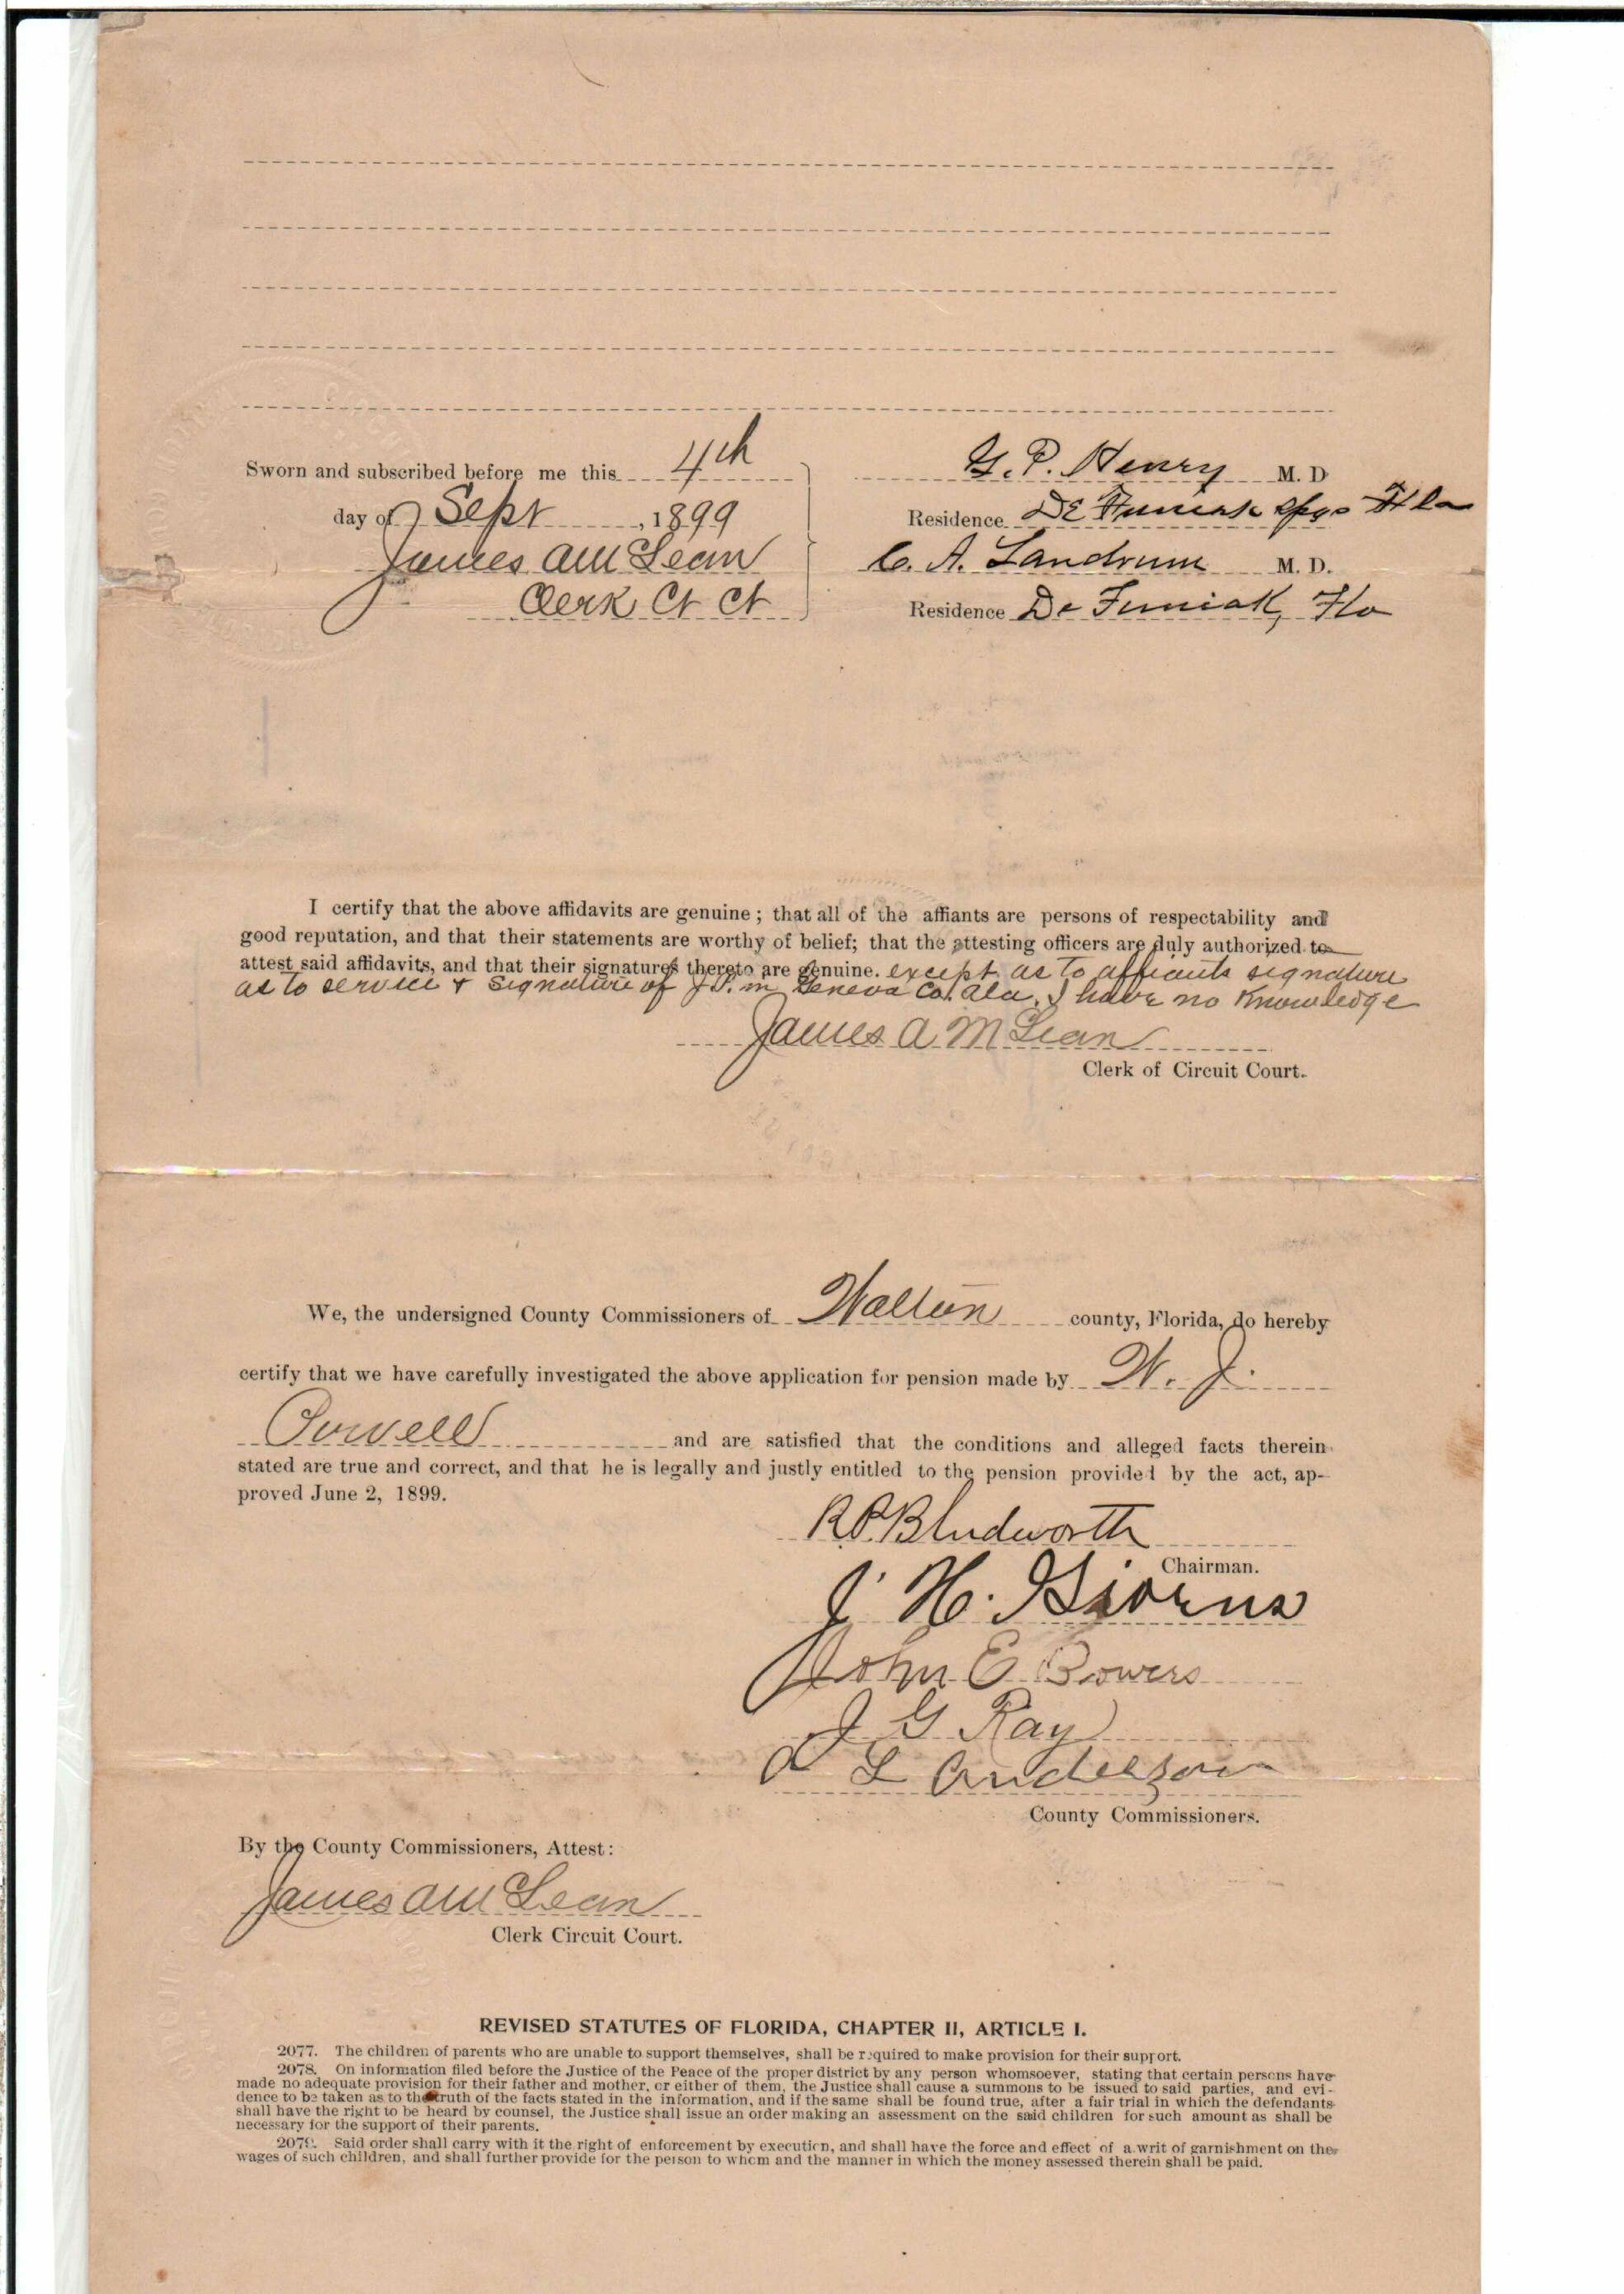 Sworn and subscribed before me this 4th
day of Sept, 1899
James A McLean
Clerk Ct Ct
G. P. Henry M. D
Residence De Funiak Spgs Fla
C. A. Landrum M. D.
Residence De Funiak, Fla
I certify that the above affidavits are genuine; that all of the affiants are persons of respectability and
good reputation, and that their statements are worthy of belief; that the attesting officers are duly authorized to
attest said affidavits, and that their signatures thereto are genuine. except as to affiants signature
as to service & signature of J.P. in Geneva Co. Ala. I have no knowledge
James A McLean
Clerk of Circuit Court.
We, the undersigned County Commissioners of Walton county, Florida, do hereby
certify that we have carefully investigated the above application for pension made by W. J.
Powell and are satisfied that the conditions and alleged facts therein
stated are true and correct, and that he is legally and justly entitled to the pension provided by the act, ap-
proved June 2, 1899.
R P. Bludworth
Chairman.
J. H.
John E Bowers
J G Ray
A L Anderson
County Commissioners.
By the County Commissioners, Attest:
James A McLean
Clerk Circuit Court.
REVISED STATUTES OF FLORIDA, CHAPTER II, ARTICLE I.
2077. The children of parents who are unable to support themselves, shall be required to make provision for their support.
2078. On information filed before the Justice of the Peace of the proper district by any person whomsoever, stating that certain persons have
made no adequate provision for their father and mother, or either of them, the Justice shall cause a summons to be issued to said parties, and evi-
dence to be taken as to the truth of the facts stated in the information, and if the same shall be found true, after a fair trial in which the defendants
shall have the right to be heard by counsel, the Justice shall issue an order making an assessment on the said children for such amount as shall be
necessary for the support of their parents.
2079. Said order shall carry with it the right of enforcement by execution, and shall have the force and effect of a writ of garnishment on the
wages of such children, and shall further provide for the person to whom and the manner in which the money assessed therein shall be paid.